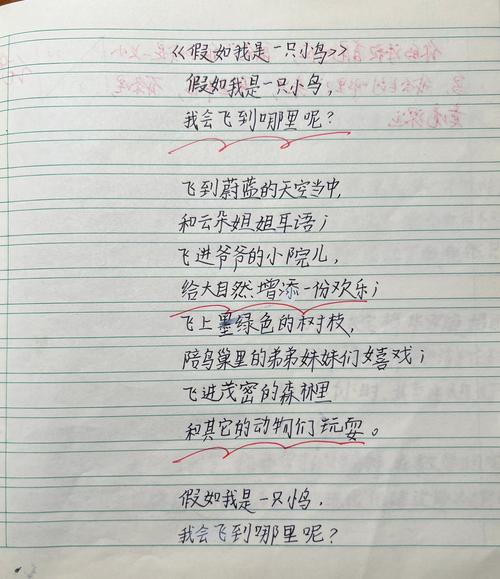 《假如我是一只小鸟》
假如我是一只小鸟,
我会飞到哪里呢?
飞到蔚蓝的天空当中,
和云朵姐姐耳语;
飞进爷爷的小院儿,
给大自然增添一份欢乐;
飞上墨绿色的树枝,
陪鸟巢里的弟弟妹妹们嬉戏;
飞进茂密的森林里
和其它的动物们玩耍。
假如我是一只小鸟,
我会飞到哪里呢?